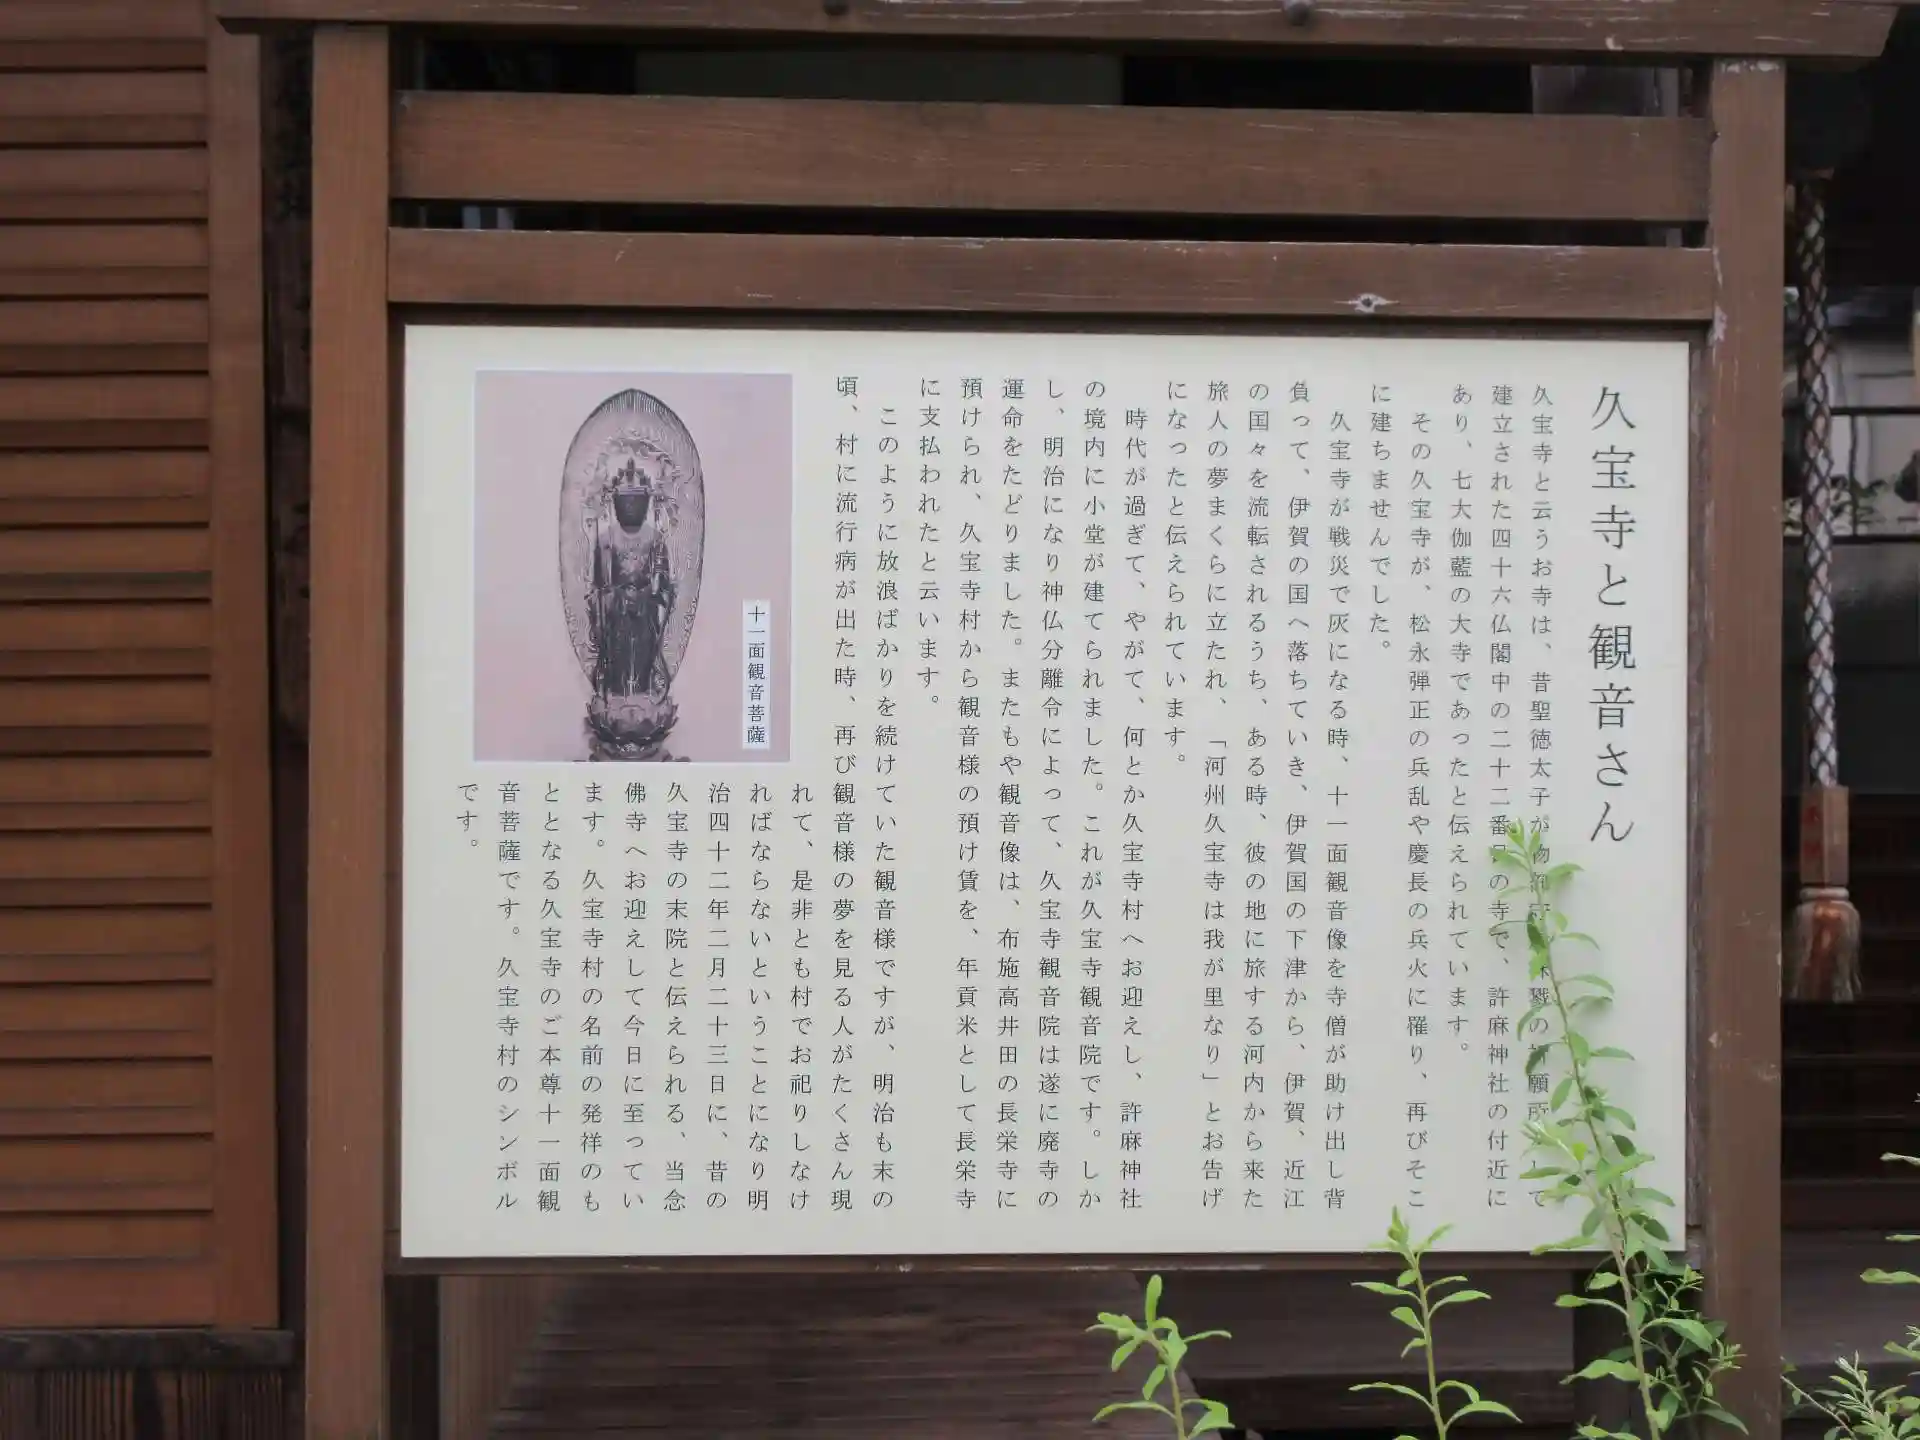 久宝寺と観音さん
久宝寺と云うお寺は、昔聖徳太子が物 の 願所 て
建立された四十六仏閣中の二十二番目の寺で、許麻神社の付近に
あり、七大伽藍の大寺であったと伝えられています。
その久宝寺が、松永弾正の兵乱や慶長の兵火に罹り、再びそこ
に建ちませんでした。
久宝寺が戦災で灰になる時、十一面観音像を寺僧が助け出し背
負って、伊賀の国へ落ちていき、伊賀国の下津から、伊賀、近江
の国々を流転されるうち、ある時、彼の地に旅する河内から来た
旅人の夢まくらに立たれ、「河州久宝寺は我が里なり」とお告げ
になったと伝えられています。
時代が過ぎて、やがて、何とか久宝寺村へお迎えし、許麻神社
の境内に小堂が建てられました。これが久宝寺観音院です。しか
し、明治になり神仏分離令によって、久宝寺観音院は遂に廃寺の
運命をたどりました。またもや観音像は、布施高井田の長栄寺に
預けられ、久宝寺村から観音様の預け賃を、年貢米として長栄寺
に支払われたと云います。
このように放浪ばかりを続けていた観音様ですが、明治も末の
頃、村に流行病が出た時、再び観音様の夢を見る人がたくさん現
れて、是非とも村でお祀りしなけ
ればならないということになり明
治四十二年二月二十三日に、昔の
久宝寺の末院と伝えられる、当念
佛寺へお迎えして今日に至ってい
ます。久宝寺村の名前の発祥のも
ととなる久宝寺のご本尊十一面観
音菩薩です。久宝寺村のシンボル
です。
十一面観音菩薩